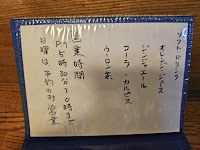 ソフトドリンク
オレンジジュース
ジンジャエール
コーラ・カルピス
ウーロン茶
営業時間
PM
5時30分〜10時まで
日曜は予約のみ営業